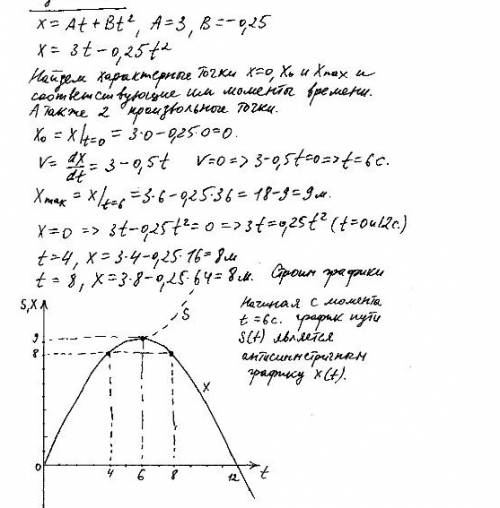 x = At + Bt², A = 3, B = -0,25
x = 3t - 0,25t²
Найдем характерные точки x=0, X₀ и Xmax и
соответствующие им моменты времени.
А также 2 произвольные точки.
X₀ = X/t=0 = 3·0 - 0,25·0 = 0.
V = dx/dt = 3 - 0,5t V=0 => 3-0,5t=0 => t=6c.
Xmax = X/t=6 = 3·6 - 0,25·36 = 18-9 = 9м.
X=0 => 3t-0,25t²=0 => 3t=0,25t² (t=0 и 12с.)
t=4, X = 3·4-0,25·16 = 8м
t = 8, X = 3·8-0,25·64 = 8м. Строим графики
Начиная с момента
t = 6с. график пути
S(t) является
антисимметричным
графику X(t).
S,X
S
9
8
X
0
4
6
8
12
t